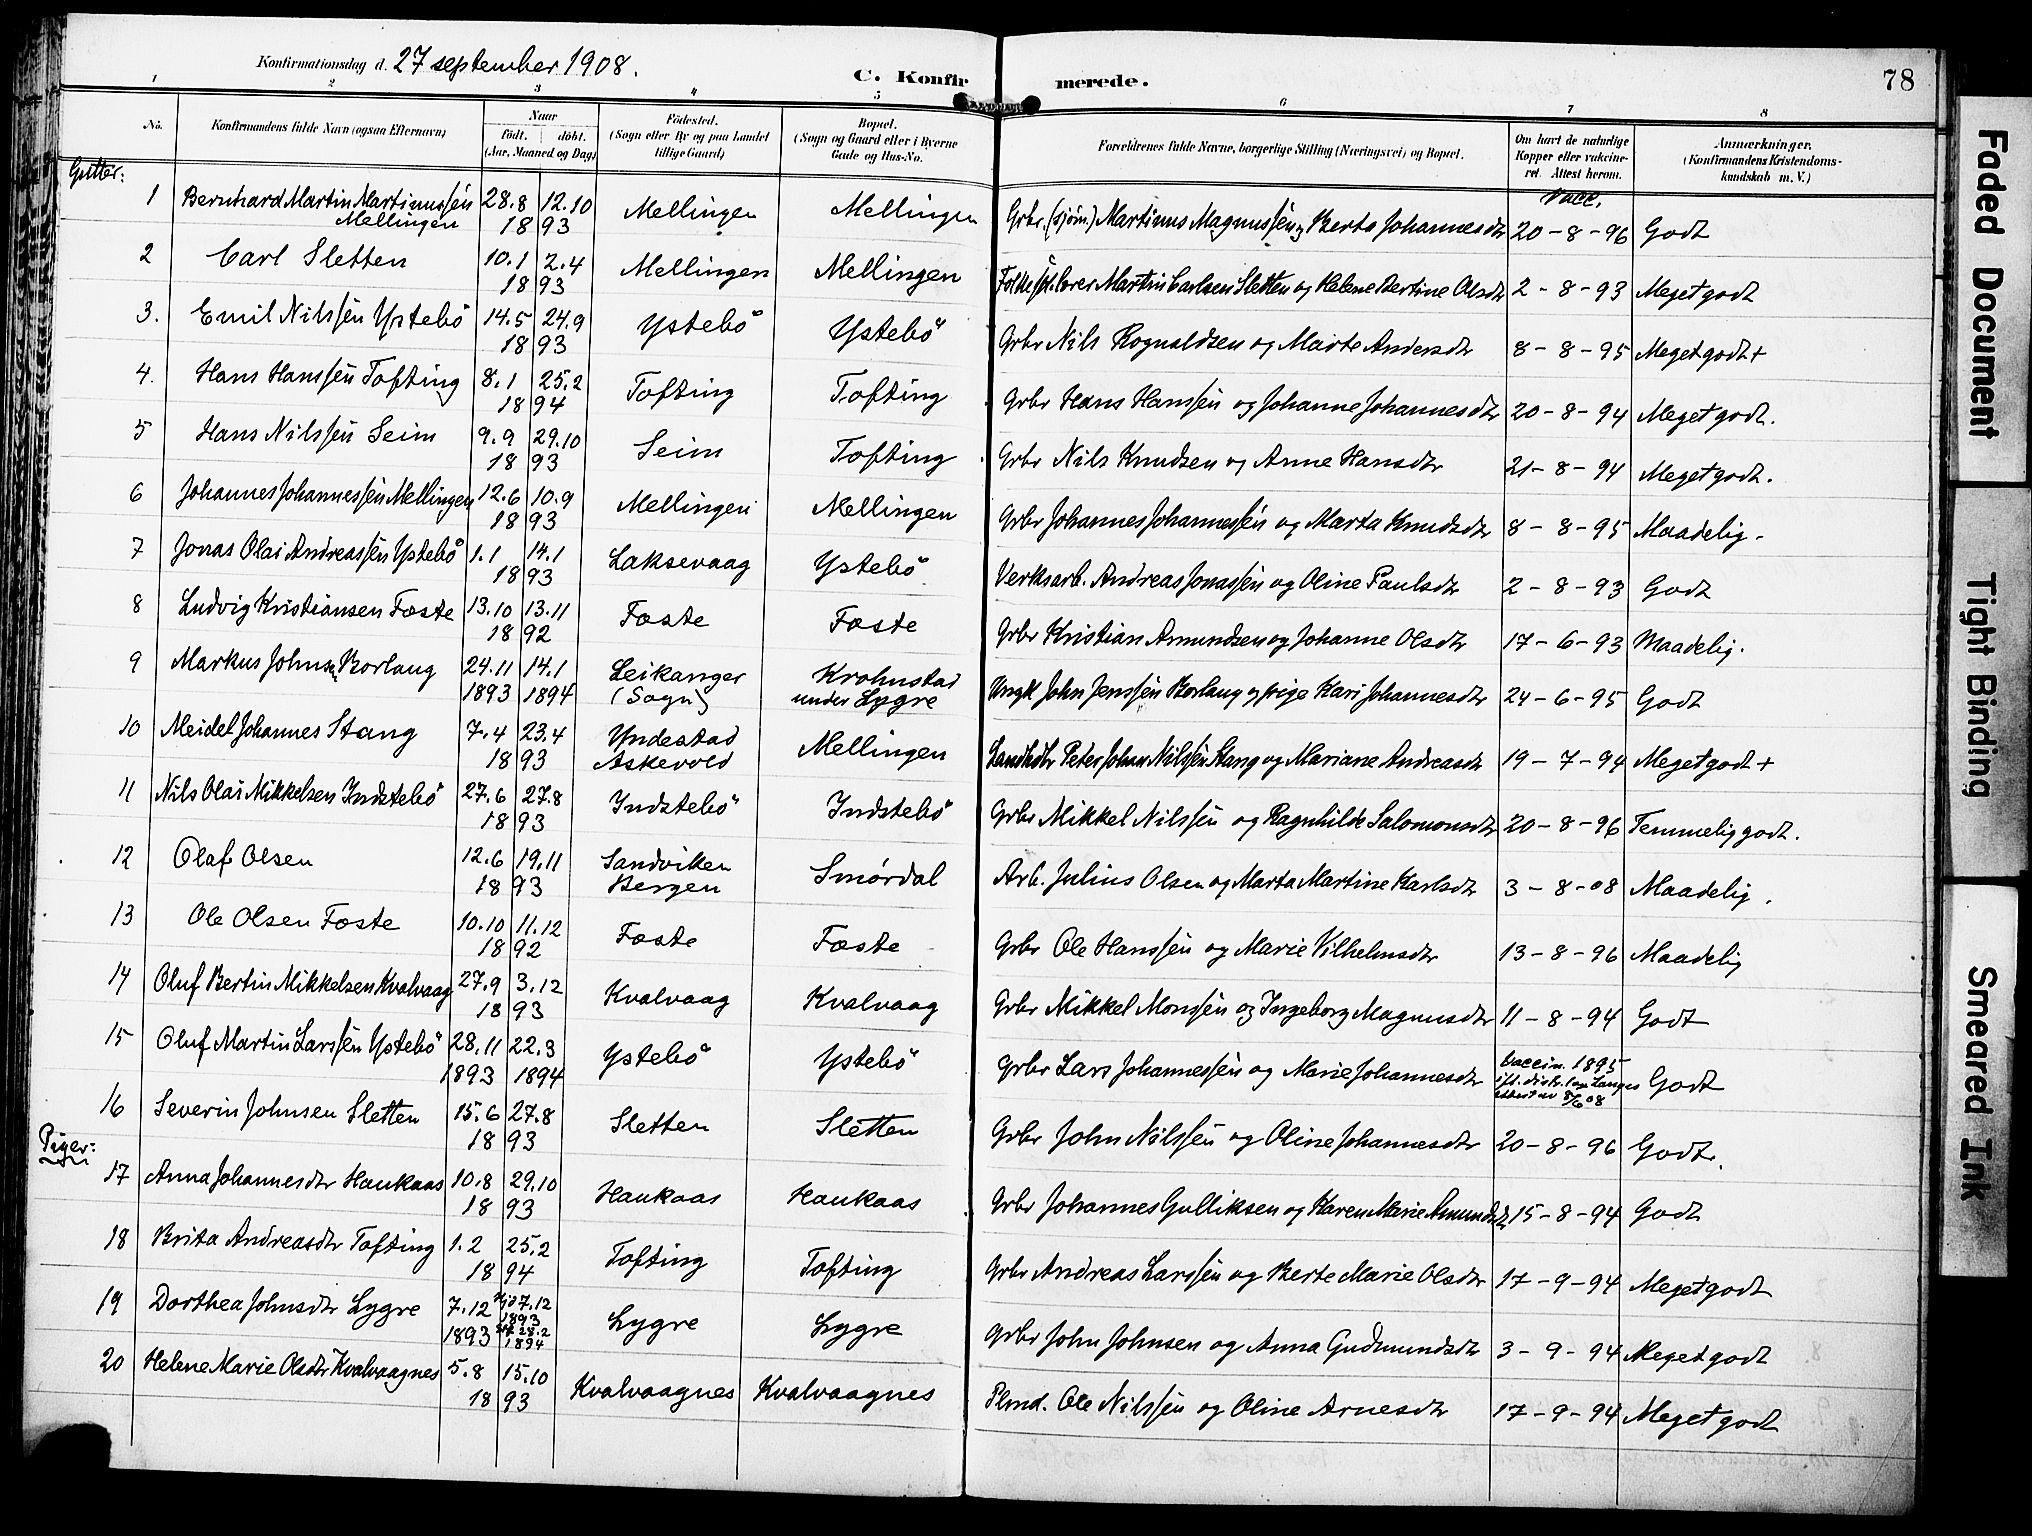 Konfirmationsdag d. 27 september 1908.
C. Konfirmerede.
78
1 2 3 4 5 6 7 8
No. | Konfirmandens fulde Navn (ogsaa Efternavn) | Naar født. døbt. (Aar, Maaned og Dag) | Fødested. (Sogn eller By og paa Landet tillige Gaard) | Bopæl. (Sogn og Gaard eller i Byerne Gade og Hus-No. | Forældrenes fulde Navne, borgerlige Stilling (Næringsvei) og Bopæl. | Om havt de naturlige Kopper eller vakcineret. Attest herom. | Anmærkninger. (Konfirmandens Kristendomskundskab m. V.)
Gutter:
Vacc.
1 Bernhard Martin Martinussen Mellingen | 28.8 12.10 1893 | Mellingen | Mellingen | Grbr. (sjøm.) Martinus Magnussen og Berta Johannesdtr | 20-8-96 | Godt
2 Carl Sletten | 10.1 2.4 1893 | Mellingen | Mellingen | Folkesk.lærer Martin Carlsen Sletten og Helene Bertine Olsdtr | 2-8-93 | Meget godt
3. Emil Nilssen Ystebö | 14.5 24.9 1893 | Ystebö | Ystebö | Grbr Nils Rognaldsen og Marte Andersdtr | 8-8-95 | Meget godt +
4. Hans Hanssen Tofting | 8.1 25.2 1894 | Tofting | Tofting | Grbr Hans Hanssen og Johanne Johannesdtr | 20-8-94 | Meget godt.
5 Hans Nilssen Seim | 9.9 29.10 1893 | Seim | Tofting | Grbr Nils Knudsen og Anne Hansdtr | 21-8-94 | Meget godt.
6 Johannes Johannessen Mellingen | 12.6 10.9 1893 | Mellingen | Mellingen | Grbr Johannes Johannessen og Marta Knudsdtr | 8-8-95 | Maadelig -
7 Jonas Olai Andreassen Ystebö | 1.1 14.1 1893 | Laksevaag | Ystebö | Verksarb. Andreas Jonassen og Oline Paulsdtr | 2-8-93 | Godt
8 Ludvig Kristiansen Fæste | 13.10 13.11 1892 | Fæste | Fæste | Grbr Kristian Amundsen og Johanne Olsdtr | 17-6-93 | Maadelig.
9 Markus Johnsen Borlaug | 24.11 1893 14.1 1894 | Leikanger (Sogn) | Krohnstad under Lygre | Ungk John Jenssen Borlaug og pige Kari Johannesdtr | 24-6-95 | Godt
10 Meidel Johannes Stang | 7.4 23.4 1893 | Yndestad Askevold | Mellingen | Landhdlr Peter Johan Nilssen Stang og Mariane Andreasdtr | 19-7-94 | Meget godt +
11 Nils Olai Mikkelsen Indstebö | 27.6 27.8 1893 | Indstebö | Indstebö | Grbr Mikkel Nilssen og Ragnhilde Salomonsdtr | 20-8-96 | Temmelig godt.
12 Olaf Olsen | 12.6 19.11 1893 | Sandviken Bergen | Smørdal | Arb. Julius Olsen og Marta Martine Karlsdtr | 3-8-08 | Maadelig.
13 Ole Olsen Fæste | 10.10 11.12 1892 | Fæste | Fæste | Grbr Ole Hanssen og Marie Vilhelmsdtr | 13-8-96 | Maadelig
14 Oluf Bertin Mikkelsen Kvalvaag | 27.9 3.12 1893 | Kvalvaag | Kvalvaag | Grbr Mikkel Monssen og Ingeborg Magnusdtr | 11-8-94 | Godt
15 Oluf Martin Larssen Ystebö | 28.11 1893 22.3 1894 | Ystebö | Ystebö | Grbr Lars Johannessen og Marie Johannesdtr | Vaccin. 1895 ifl. distr.læge Langes attest av 8/6 08 | Godt
16 Severin Johnsen Sletten | 15.6 27.8 1893 | Sletten | Sletten | Grbr John Nilssen og Oline Johannesdtr | 20-8-96 | Godt.
Piger:
17 Anna Johannesdtr Haukaas | 10.8 29.10 1893 | Haukaas | Haukaas | Grbr Johannes Gulliksen og Karen Marie Amundsdtr | 15-8-94 | Godt
18 Brita Andreasdtr Tofting | 1.2 25.2 1894 | Tofting | Tofting | Grbr Andreas Larssen og Berte Marie Olsdtr | 17-9-94 | Meget godt
19 Dorthea Johnsdtr Lygre | 7.12 1893 Hjd 7.12 1893 Stf 28.2 1894 | Lygre | Lygre | Grbr John Johnsen og Anna Gudmundsdtr | 3-9-94 | Meget godt
20 Helene Marie Olsdtr Kvalvaagnes | 5.8 15.10 1893 | Kvalvaagnes | Kvalvaagnes | Plmd. Ole Nilssen og Oline Arnesdtr | 17-9-94 | Meget godt
Faded Document
Tight Binding
Smeared Ink